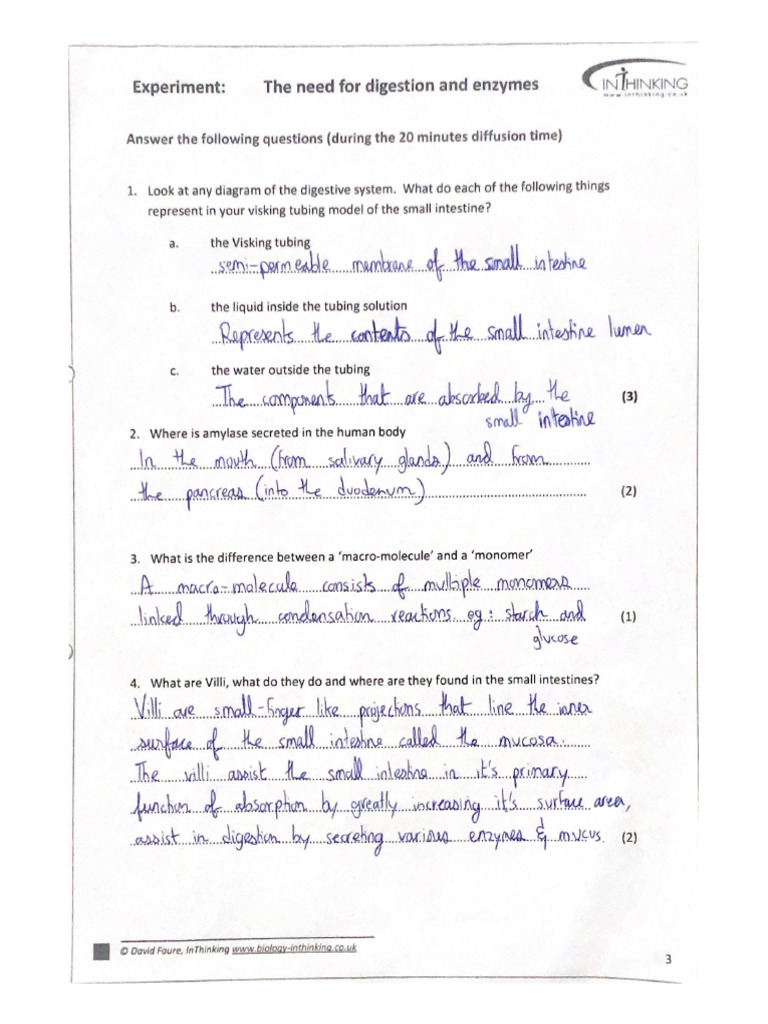 Experiment: The need for digestion and enzymes
INTHINKING
www.inthinking.co.uk
Answer the following questions (during the 20 minutes diffusion time)
1. Look at any diagram of the digestive system. What do each of the following things
represent in your visking tubing model of the small intestine?
a. the Visking tubing
semi-permeable membrane of the small intestine
b. the liquid inside the tubing solution
Represents the contents of the small intestine lumen
c. the water outside the tubing
The components that are absorbed by the (3)
small intestine
2. Where is amylase secreted in the human body
In the mouth (from salivary glands) and from
the pancreas (into the duodenum) (2)
3. What is the difference between a 'macro-molecule' and a 'monomer'
A macro-molecule consists of multiple monomers
linked through condensation reactions. eg: starch and (1)
glucose
4. What are Villi, what do they do and where are they found in the small intestines?
Villi are small-finger like projections that line the inner
surface of the small intestine called the mucosa.
The villi assist the small intestine in it's primary
function of absorption by greatly increasing it's surface area,
assist in digestion by secreting various enzymes & mucus. (2)
© David Faure, InThinking www.biology-inthinking.co.uk
3